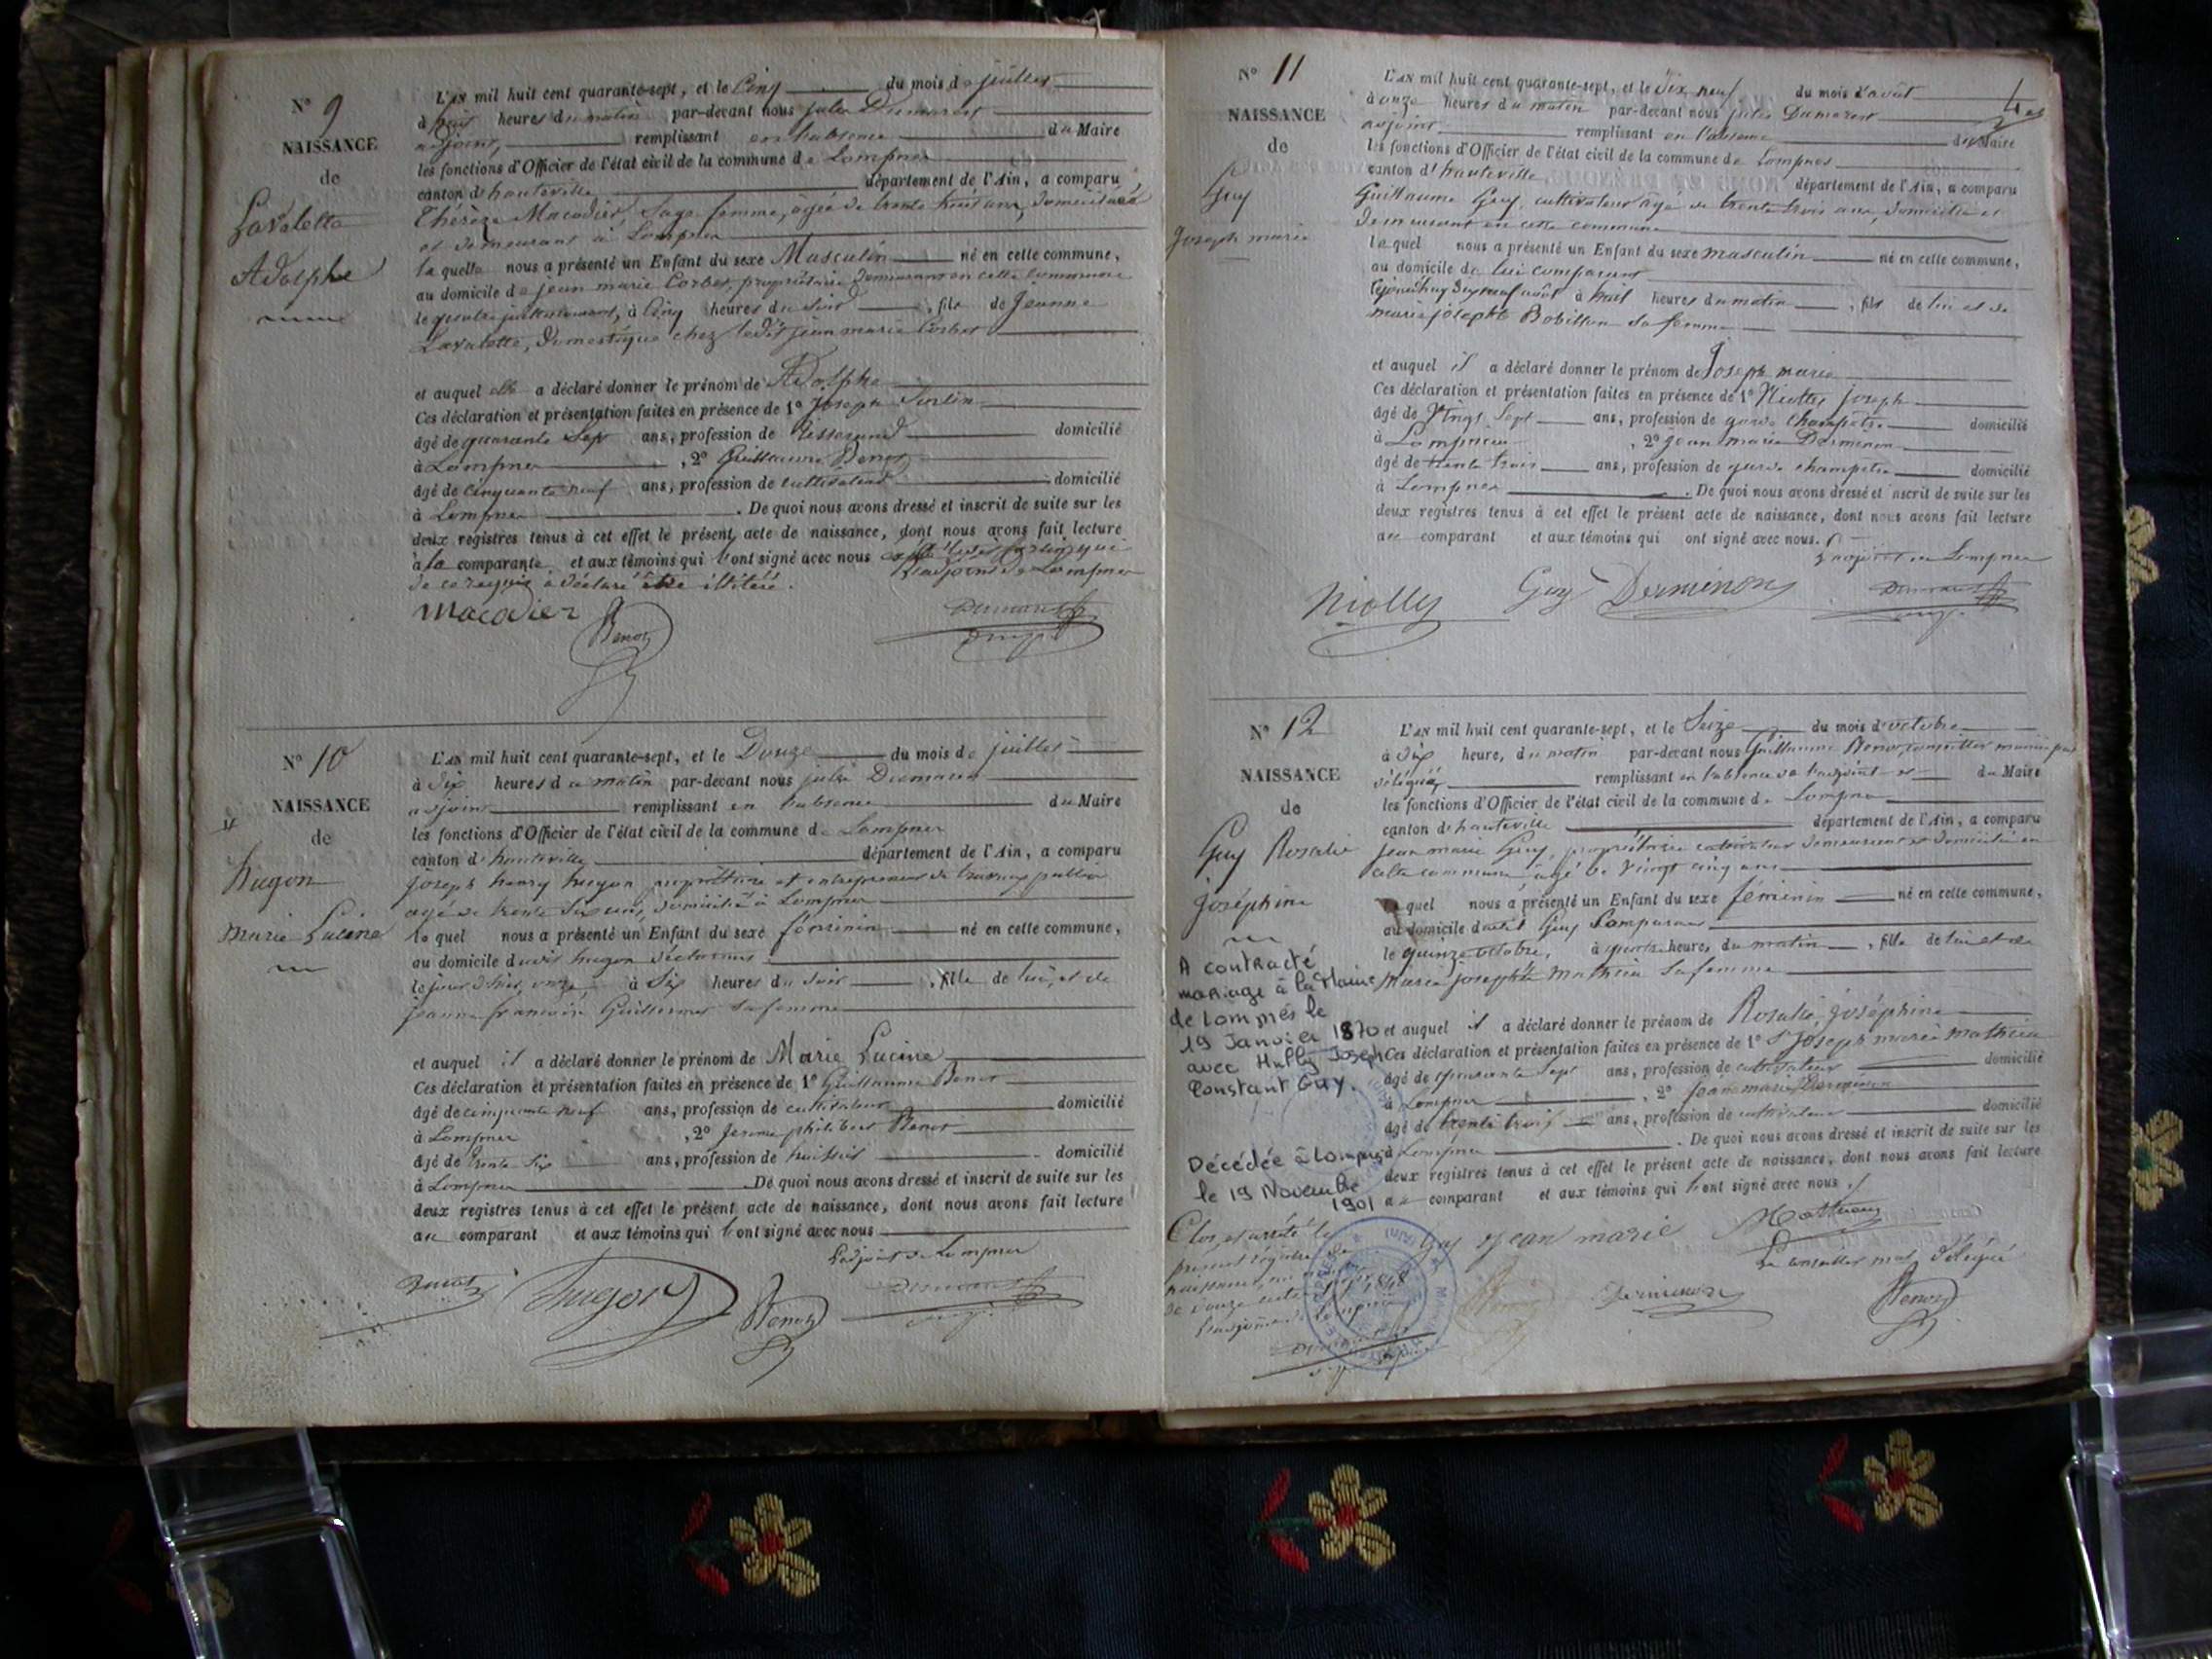 N° 9
NAISSANCE
de
Lavalette
Adolphe
L'AN mil huit cent quarante-sept, et le Cinq du mois de juillet
à huit heures du matin par-devant nous jules Dumarest
adjoint, remplissant en l'absence du Maire
les fonctions d'Officier de l'état civil de la commune de Lompnes
canton d'hauteville département de l'Ain, a comparu
Thérèse Macodier, Sage femme, agée de trente huit ans, domiciliée
et demeurant à Lompnes
laquelle nous a présenté un Enfant du sexe Masculin né en cette commune,
au domicile de jean marie Corbet, propriétaire demeurant en cette commune
le quatre juillet courant, à Cinq heures du Soir, fils de Jeanne
Lavalette, domestique chez ledit jean marie Corbet
et auquel elle a déclaré donner le prénom de Adolphe
Ces déclaration et présentation faites en présence de 1° Joseph
âgé de quarante Sept ans, profession de Tisserand domicilié
à Lompnes, 2° Guillaume Benoz
âgé de cinquante neuf ans, profession de cultivateur domicilié
à Lompnes. De quoi nous avons dressé et inscrit de suite sur les
deux registres tenus à cet effet le présent acte de naissance, dont nous avons fait lecture
à la comparante et aux témoins qui l'ont signé avec nous
de ce requis a déclaré être illitéré. L'adjoint de Lompnes
Macodier Benoz Dumarest
N° 10
NAISSANCE
de
Hugon
Marie Lucine
L'AN mil huit cent quarante-sept, et le Douze du mois de juillet
à Dix heures du matin par-devant nous jules Dumarest
adjoint remplissant en l'absence du Maire
les fonctions d'Officier de l'état civil de la commune de Lompnes
canton d'hauteville département de l'Ain, a comparu
joseph henry hugon propriétaire et entrepreneur de travaux publics
agé de trente six ans, domicilié à Lompnes
lequel nous a présenté un Enfant du sexe féminin né en cette commune,
au domicile dudit hugon déclarant
le jour d'hier onze à Six heures du soir, fille de lui, et de
jeanne françoise Guillermet sa femme
et auquel il a déclaré donner le prénom de Marie Lucine
Ces déclaration et présentation faites en présence de 1° Guillaume Benoz
âgé de cinquante neuf ans, profession de cultivateur domicilié
à Lompnes, 2° Jerome philibert Benoz
âgé de trente Six ans, profession de huissier domicilié
à Lompnes De quoi nous avons dressé et inscrit de suite sur les
deux registres tenus à cet effet le présent acte de naissance, dont nous avons fait lecture
au comparant et aux témoins qui l'ont signé avec nous
L'adjoint de Lompnes
Benoz hugon Benoz Dumarest
N° 11
NAISSANCE
de
Guy
Joseph marie
L'AN mil huit cent quarante-sept, et le Dix neuf du mois d'août
à onze heures du matin par-devant nous jules Dumarest
adjoint remplissant en l'absence du Maire
les fonctions d'Officier de l'état civil de la commune de Lompnes
canton d'hauteville département de l'Ain, a comparu
Guillaume Guy, cultivateur agé de trente trois ans, domicilié et
demeurant en cette commune
lequel nous a présenté un Enfant du sexe masculin né en cette commune,
au domicile de lui comparant
le jourd'huy dix neuf août à huit heures du matin, fils de lui et de
marie josephte Bobillon sa femme
et auquel il a déclaré donner le prénom de Joseph marie
Ces déclaration et présentation faites en présence de 1° Niolley Joseph
âgé de Vingt Sept ans, profession de garde champêtre domicilié
à Lompnieu, 2° jean marie Derminon
âgé de trente trois ans, profession de garde champêtre domicilié
à Lompnes. De quoi nous avons dressé et inscrit de suite sur les
deux registres tenus à cet effet le présent acte de naissance, dont nous avons fait lecture
au comparant et aux témoins qui ont signé avec nous.
L'adjoint de Lompnes
Niolley Guy Derminon Dumarest
N° 12
NAISSANCE
de
Guy Rosalie
joséphine
L'AN mil huit cent quarante-sept, et le Seize du mois d'octobre
à Dix heure, du matin par-devant nous Guillaume Benoz, conseiller municipal
délégué, remplissant en l'absence de l'adjoint et du Maire
les fonctions d'Officier de l'état civil de la commune de Lompnes
canton d'hauteville département de l'Ain, a comparu
jean marie Guy, propriétaire cultivateur demeurant et domicilié en
cette commune, agé de vingt cinq ans
lequel nous a présenté un Enfant du sexe féminin né en cette commune,
au domicile dudit Guy Comparant
le quinze octobre, à quatre heures du matin, fille de lui et de
Marie josephte Mathieu sa femme
et auquel il a déclaré donner le prénom de Rosalie, joséphine
Ces déclaration et présentation faites en présence de 1° Joseph marie mathieu
âgé de quarante Sept ans, profession de cultivateur domicilié
à Lompnes, 2° jean marie Derminon
âgé de trente trois ans, profession de cultivateur domicilié
à Lompnes. De quoi nous avons dressé et inscrit de suite sur les
deux registres tenus à cet effet le présent acte de naissance, dont nous avons fait lecture
au comparant et aux témoins qui l'ont signé avec nous.
A contracté
mariage à la Mairie
de Lompnes le
19 Janvier 1870
avec Hully Joseph
Constant Guy.
Décédée à Lompnes
le 19 Novembre
1901
Guy jean marie Mathieu
Le conseiller mal délégué
Derminon Benoz
Clos et arrêté le
présent régistre de
naissance, au nombre
de douze
L'adjoint de Lompnes
Dumarest